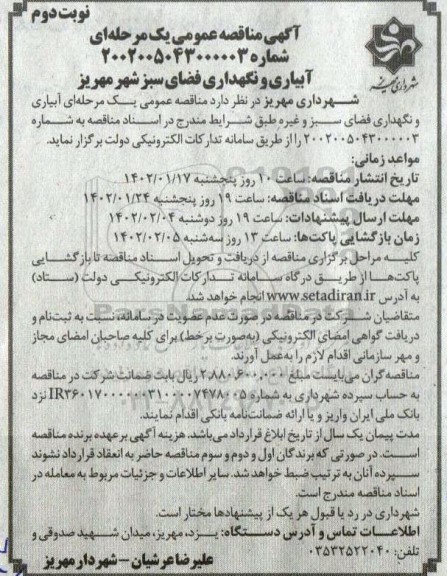 نوبت دوم
آگهی مناقصه عمومی یک مرحله‌ای
شماره ۲۰۰۲۰۰۵۰۴۳۰۰۰۰۰۳
آبیاری و نگهداری فضای سبز شهر مهریز
شهرداری مهریز
شهرداری مهریز در نظر دارد مناقصه عمومی یک مرحله‌ای آبیاری
و نگهداری فضای سبز و غیره طبق شرایط مندرج در اسناد مناقصه به شماره
۲۰۰۲۰۰۵۰۴۳۰۰۰۰۰۳ را از طریق سامانه تدارکات الکترونیکی دولت برگزار نماید.
مواعد زمانی:
تاریخ انتشار مناقصه: ساعت ۱۰ روز پنجشنبه ۱۴۰۲/۰۱/۱۷
مهلت دریافت اسناد مناقصه: ساعت ۱۹ روز پنجشنبه ۱۴۰۲/۰۱/۲۴
مهلت ارسال پیشنهادات: ساعت ۱۹ روز دوشنبه ۱۴۰۲/۰۲/۰۴
زمان بازگشایی پاکت‌ها: ساعت ۱۳ روز سه‌شنبه ۱۴۰۲/۰۲/۰۵
کلیه مراحل برگزاری مناقصه از دریافت و تحویل اسناد مناقصه تا بازگشایی
پاکت‌ها از طریق درگاه سامانه تدارکات الکترونیکی دولت (ستاد)
به آدرس www.setadiran.ir انجام خواهد شد.
متقاضیان شرکت در مناقصه در صورت عدم عضویت در سامانه، نسبت به ثبت‌نام و
دریافت گواهی امضای الکترونیکی (به‌صورت برخط) برای کلیه صاحبان امضای مجاز
و مهر سازمانی اقدام لازم را به‌عمل آورند.
مناقصه‌گران می‌بایست مبلغ ۲،۸۸۰،۶۰۰،۰۰۰ ریال بابت ضمانت شرکت در مناقصه
به حساب سپرده شهرداری به شماره نزد
بانک ملی ایران واریز و یا ارائه ضمانت‌نامه بانکی اقدام نمایند.
مدت پیمان یک سال از تاریخ ابلاغ قرارداد می‌باشد. هزینه آگهی بر عهده برنده مناقصه
است. در صورتی که برندگان اول و دوم و سوم مناقصه حاضر به انعقاد قرارداد نشوند
سپرده آنان به ترتیب ضبط خواهد شد. سایر اطلاعات و جزئیات مربوط به معامله در
اسناد مناقصه مندرج است.
شهرداری در رد یا قبول هر یک از پیشنهادها مختار است.
اطلاعات تماس و آدرس دستگاه: یزد، مهریز، میدان شهید صدوقی و
تلفن: ۰۳۵۳۲۵۲۲۰۴۰
علیرضا عرشیان - شهردار مهریز